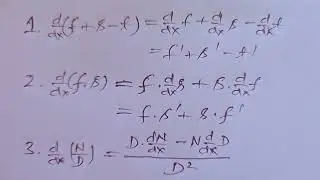 1. d/dx (f + g - f) = d/dx f + d/dx g - d/dx f
= f' + g' - f'
2. d/dx (f . g) = f . d/dx g + g . d/dx f
= f . g' + g . f'
3. d/dx (N/D) = (D . dN/dx - N d/dx D) / D²